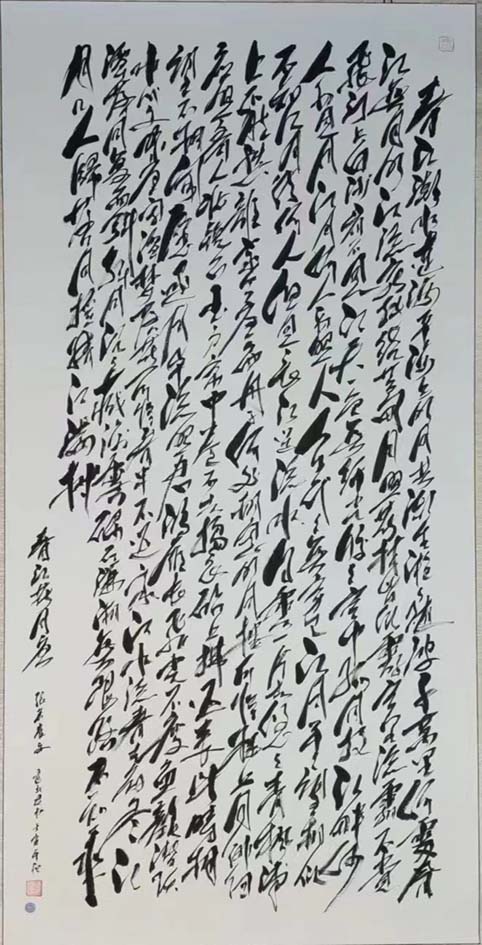 春江潮水连海平海上明月共潮生滟滟随波千万里何处春
江无月明江流宛转绕芳甸月照花林皆似霰空里流霜不觉
飞汀上白沙看不见江天一色无纤尘皎皎空中孤月轮江畔何
人初见月江月何年初照人人生代代无穷已江月年年望相似
不知江月待何人但见长江送流水白云一片去悠悠青枫浦
上不胜愁谁家今夜扁舟子何处相思明月楼可怜楼上月徘徊
应照离人妆镜台玉户帘中卷不去捣衣砧上拂还来此时相
望不相闻愿逐月华流照君鸿雁长飞光不度鱼龙潜跃
水成文昨夜闲潭梦落花可怜春半不还家江水流春去欲尽江
潭落月复西斜斜月沉沉藏海雾碣石潇湘无限路不知乘
月几人归落月摇情江满树
春江花月夜
张若虚